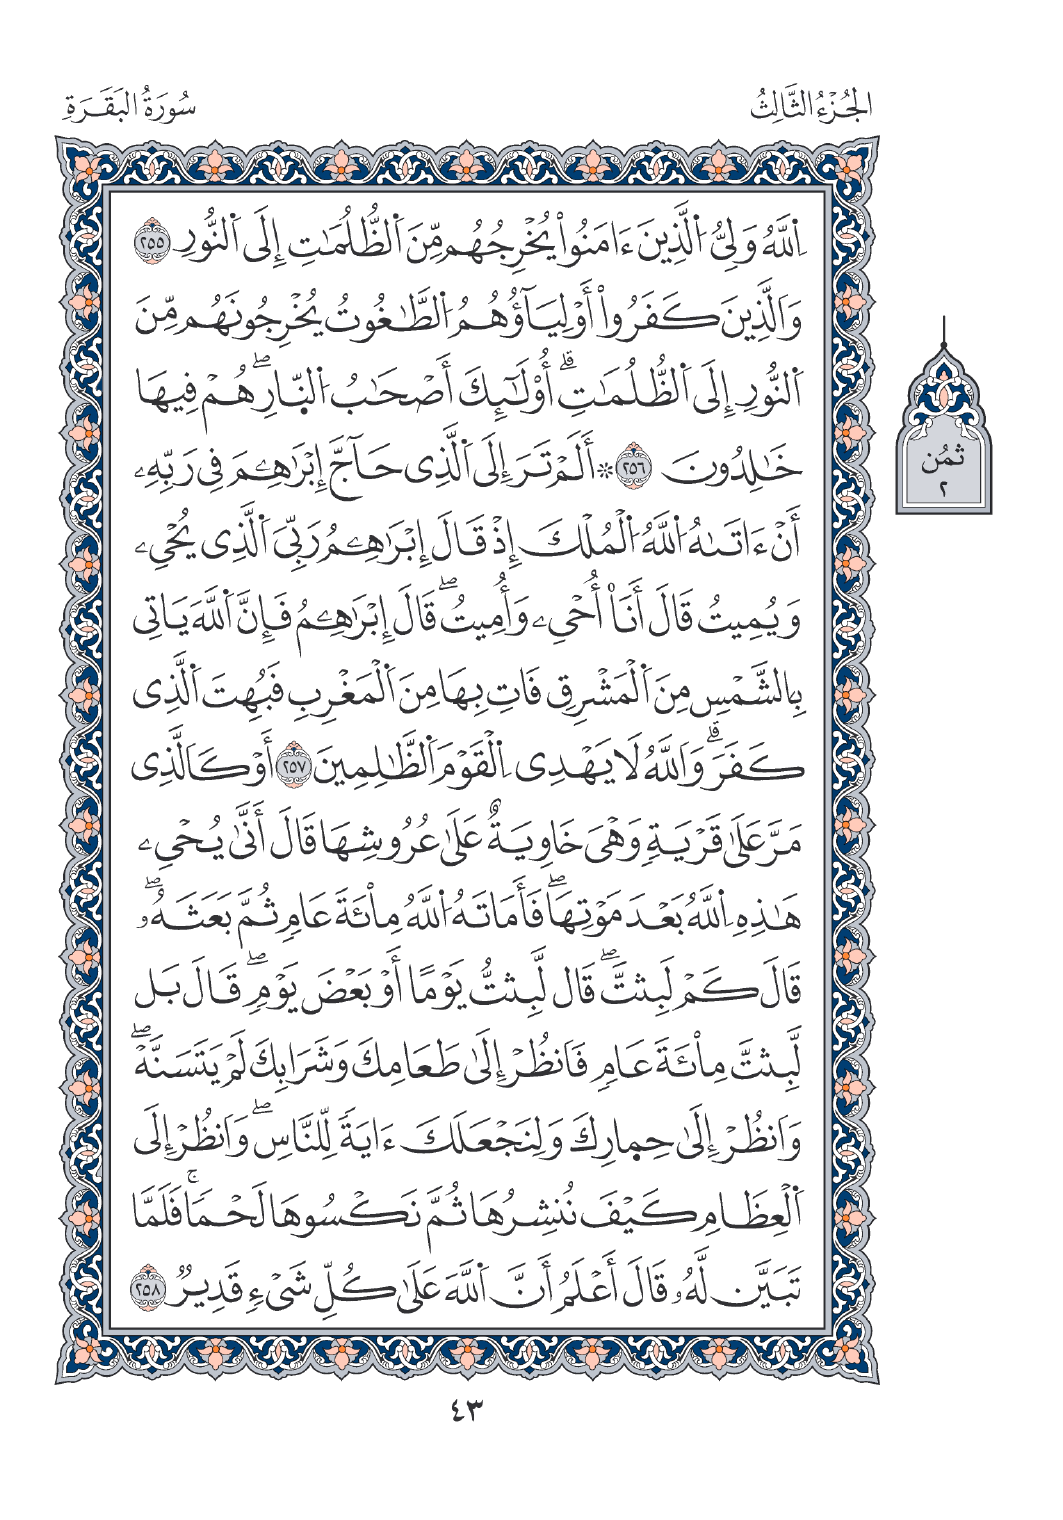 الجُزْءُ الثَّالِثُ
سُورَةُ البَقَرَةِ
اِ۬للَّهُ وَلِيُّ اُ۬لذِينَ ءَامَنُواْ يُخْرِجُهُم مِّنَ اَ۬لظُّلُمَٰتِ إِلَى اَ۬لنُّورِ ٢٥٥
وَالذِينَ كَفَرُواْ أَوْلِيَآؤُهُمُ اُ۬لطَّٰغُوتُ يُخْرِجُونَهُم مِّنَ
اَ۬لنُّورِ إِلَى اَ۬لظُّلُمَٰتِۗ أُوْلَٰٓئِكَ أَصْحَٰبُ اُ۬لنّ۪ارِۖ هُمْ فِيهَا
خَٰلِدُونَ ٢٥٦ ۞أَلَمْ تَرَ إِلَى اَ۬لذِى حَآجَّ إِبْرَٰهِيمَ فِى رَبِّهِۦ
أَنْ ءَاتَىٰهُ اُ۬للَّهُ اُ۬لْمُلْكَ إِذْ قَالَ إِبْرَٰهِيمُ رَبِّىَ اَ۬لذِى يُحْىِۦ
وَيُمِيتُ قَالَ أَنَا۠ أُحْىِۦ وَأُمِيتُۖ قَالَ إِبْرَٰهِيمُ فَإِنَّ اَ۬للَّهَ يَاتِى
بِالشَّمْسِ مِنَ اَ۬لْمَشْرِقِ فَاتِ بِهَا مِنَ اَ۬لْمَغْرِبِ فَبُهِتَ اَ۬لذِى
كَفَرَۗ وَاللَّهُ لَا يَهْدِى اِ۬لْقَوْمَ اَ۬لظَّٰلِمِينَ ٢٥٧ أَوْ كَالذِى
مَرَّ عَلَىٰ قَرْيَةٍ وَهْىَ خَاوِيَةٌ عَلَىٰ عُرُوشِهَا قَالَ أَنّ۪ىٰ يُحْىِۦ
هَٰذِهِ اِ۬للَّهُ بَعْدَ مَوْتِهَاۖ فَأَمَاتَهُ اُ۬للَّهُ مِاْئَةَ عَامٍ ثُمَّ بَعَثَهُۥۖ
قَالَ كَمْ لَبِثتَّۖ قَال لَّبِثتُّ يَوْمًا أَوْ بَعْضَ يَوْمٍۖ قَالَ بَل
لَّبِثتَّ مِاْئَةَ عَامٍ فَانظُرْ إِلَىٰ طَعَامِكَ وَشَرَابِكَ لَمْ يَتَسَنَّهْۖ
وَانظُرْ إِلَىٰ حِم۪ارِكَ وَلِنَجْعَلَكَ ءَايَةً لِّلنَّاسِۖ وَانظُرْ إِلَى
اَ۬لْعِظَامِ كَيْفَ نُنشِرُهَا ثُمَّ نَكْسُوهَا لَحْمًاۚ فَلَمَّا
تَبَيَّن لَّهُۥ قَالَ أَعْلَمُ أَنَّ اَ۬للَّهَ عَلَىٰ كُلِّ شَىْءٍ قَدِيرٌ ٢٥٨
ثُمُن
٢
٤٣